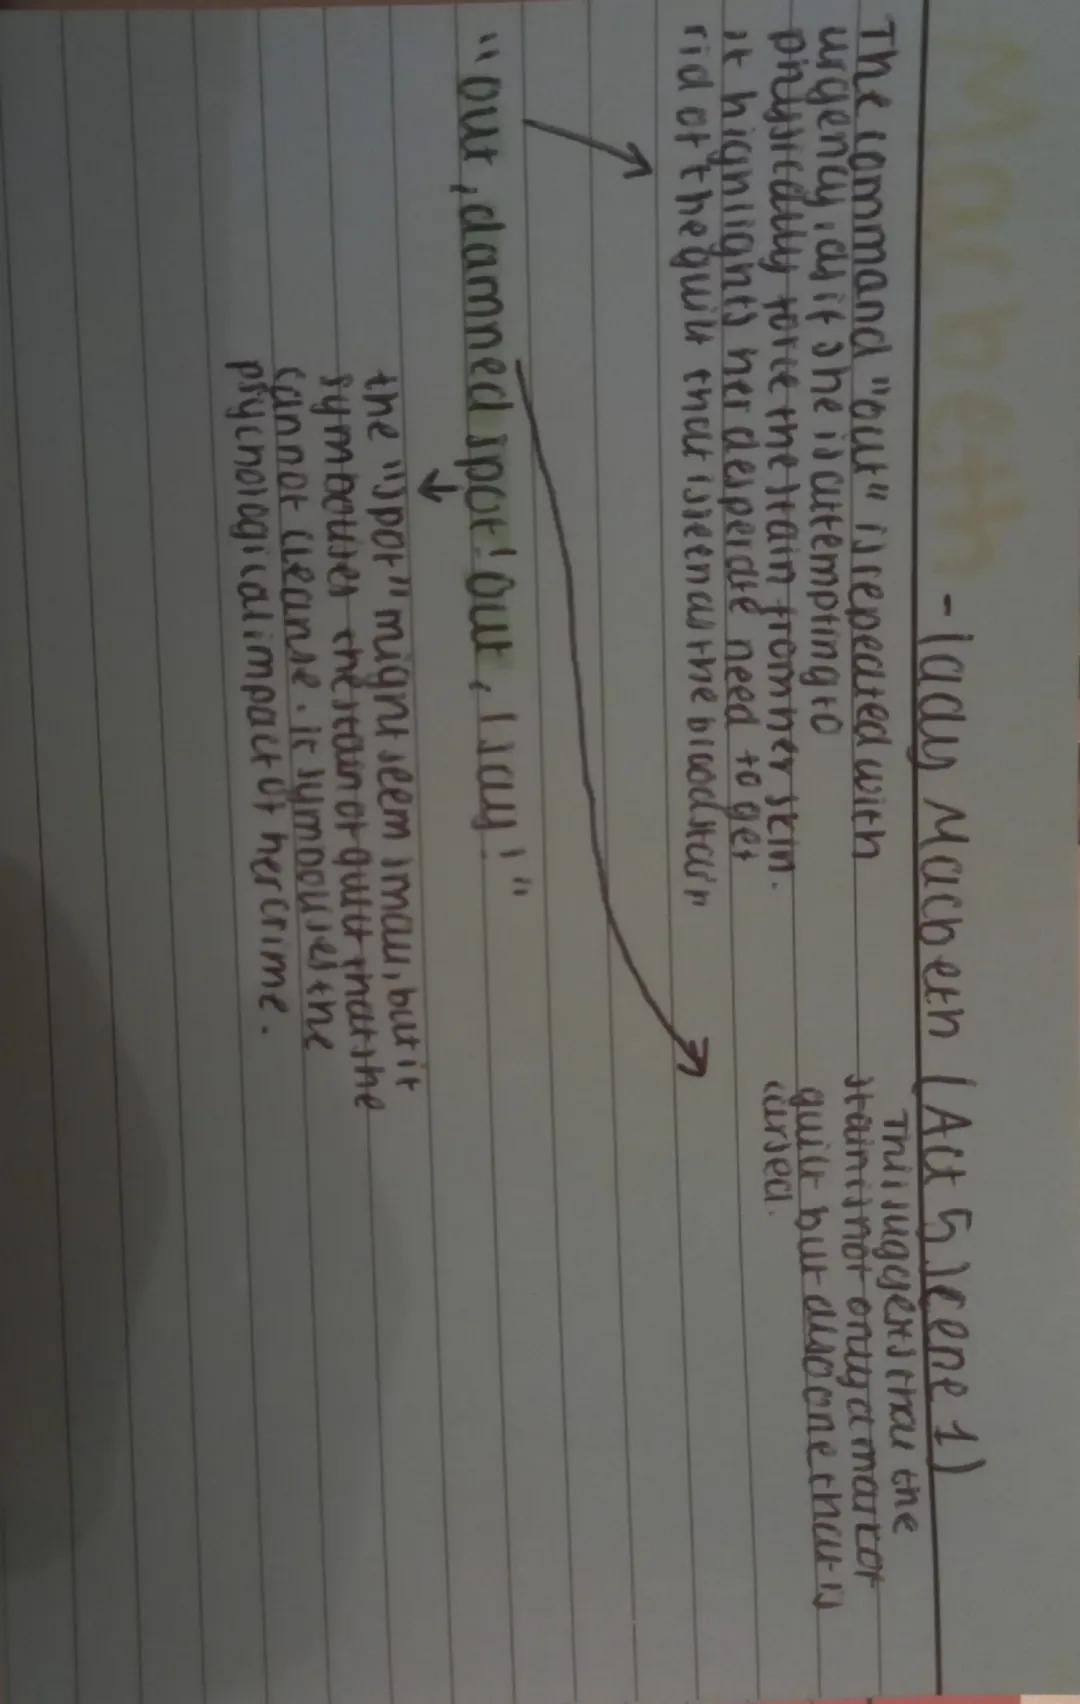 Macbeth - Lady Macbeth (Act 5 Scene 1)
The command "out" is repeated with
urgency, as if she is attempting to
physically force the stain from her skin.
it highlights her desperate need to get
rid of the guilt that is seen as the blood stain
This suggests that the
stain is not only a mark of
guilt but also one that is
cursed.
"out, damned spot! Out, I say!"
the "spot" might seem small, but it
symbolises the stain of guilt that she
cannot cleanse. it symbolises the
psychological impact of her crime.